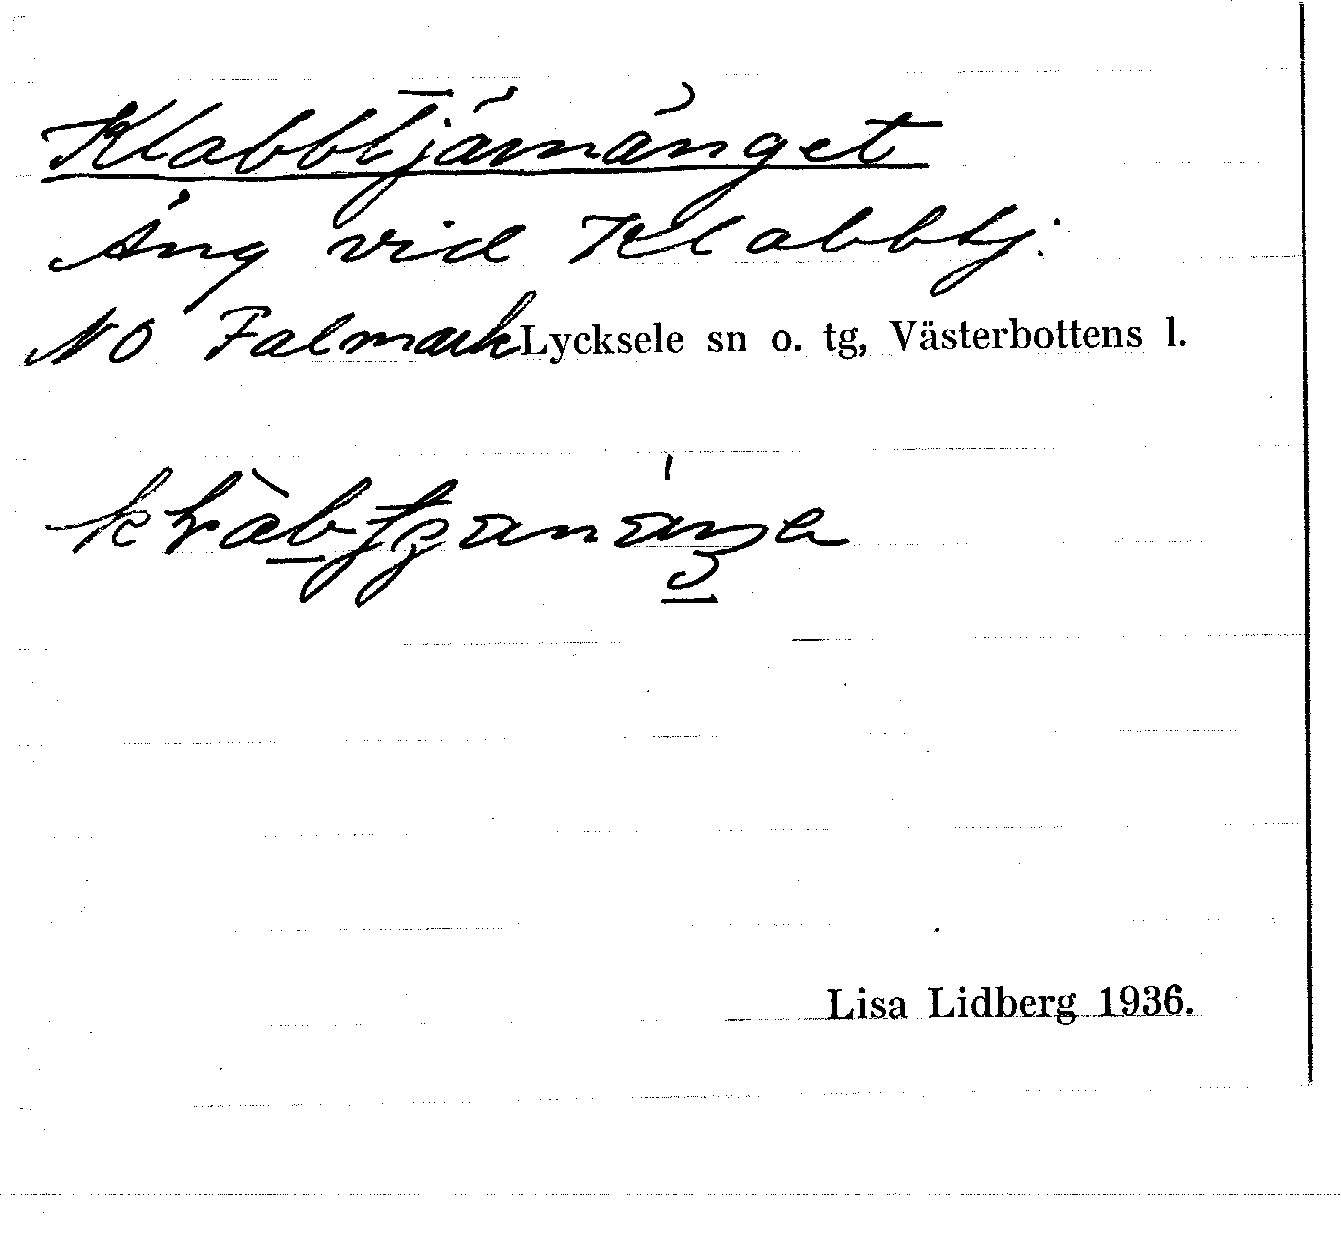 Klabbtjärnänget
Äng vid Klabbtj.
NO Falmark Lycksele sn o. tg, Västerbottens l.
Lisa Lidberg 1936.